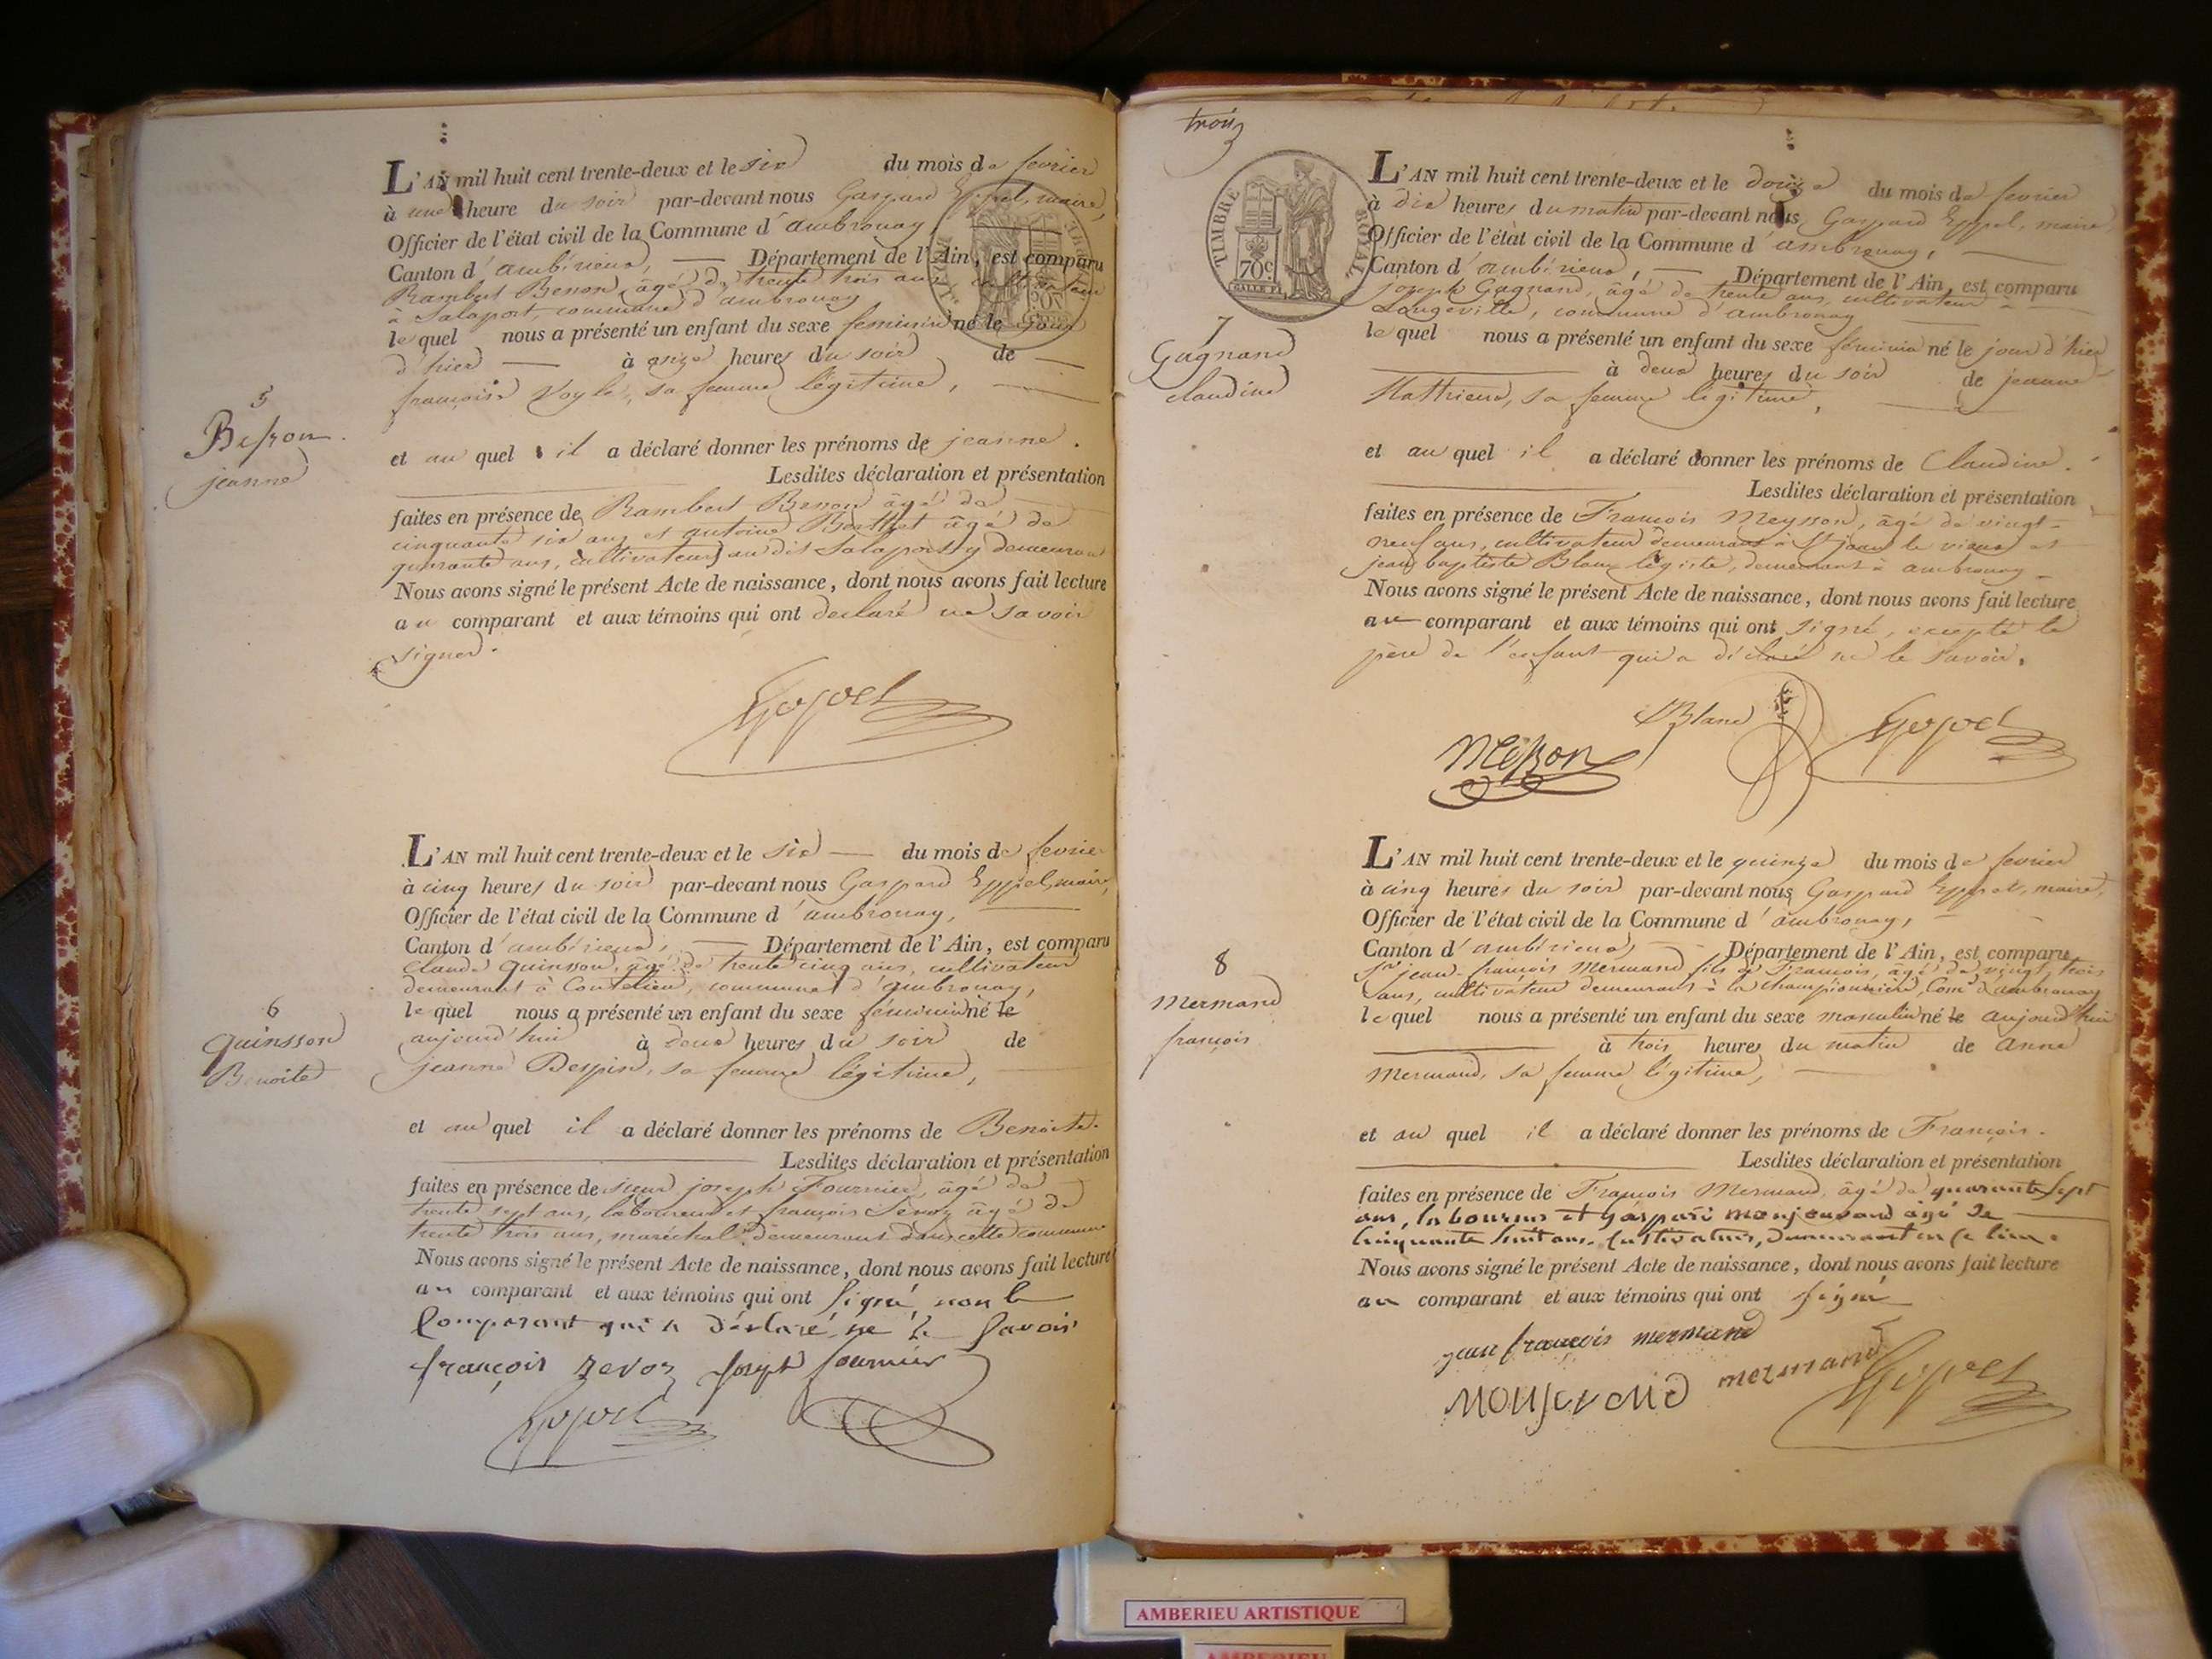 L'AN mil huit cent trente-deux et le six du mois de fevrier
à une heure du soir par-devant nous Gaspard Eppel, maire,
Officier de l'état civil de la Commune d'ambronay
Canton d'ambérieux, Département de l'Ain, est comparu
Rambert Besson, âgé de trente trois ans, cultivateur
à Salaport commune d'ambronay
lequel nous a présenté un enfant du sexe feminin né le jour
d'hier à onze heures du soir de
françoise sa femme légitime,
5
Besson
jeanne
et au quel il a déclaré donner les prénoms de jeanne.
Lesdites déclaration et présentation
faites en présence de Rambert Besson âgé de
cinquante six ans et antoine Berthet âgé de
quarante ans, cultivateurs au dit Salaport y demeurant
Nous avons signé le présent Acte de naissance, dont nous avons fait lecture
au comparant et aux témoins qui ont declaré ne savoir
signer.
Eppel
L'AN mil huit cent trente-deux et le six du mois de fevrier
à cinq heures du soir par-devant nous Gaspard Eppel, maire,
Officier de l'état civil de la Commune d'ambronay,
Canton d'ambérieux, Département de l'Ain, est comparu
Claude quinsson, âgé de trente cinq ans, cultivateur
demeurant à Coutelieu, commune d'ambronay,
lequel nous a présenté un enfant du sexe féminin né le
aujourd'hui à deux heures du soir de
jeanne Despin, sa femme légitime,
6
quinsson
Benoite
et au quel il a déclaré donner les prénoms de Benoite.
Lesdites déclaration et présentation
faites en présence de sieur joseph Fournier, âgé de
trente sept ans, laboureur et françois Sevoz âgé de
trente trois ans, maréchal demeurant dans cette commune
Nous avons signé le présent Acte de naissance, dont nous avons fait lecture
au comparant et aux témoins qui ont signé, non le
Comparant qui a déclaré ne le savoir
françois sevoz joseph fournier
Eppel
trois
TIMBRE ROYAL
70c.
L'AN mil huit cent trente-deux et le douze du mois de fevrier
à dix heures du matin par-devant nous Gaspard Eppel, maire,
Officier de l'état civil de la Commune d'ambronay,
Canton d'ambérieux, Département de l'Ain, est comparu
joseph Gagnand, âgé de trente ans, cultivateur à
Longeville, commune d'ambronay
lequel nous a présenté un enfant du sexe féminin né le jour d'hier
à deux heures du soir de jeanne
Mathieu, sa femme légitime,
7
Gagnand
claudine
et au quel il a déclaré donner les prénoms de Claudine.
Lesdites déclaration et présentation
faites en présence de François Meysson, âgé de vingt
neuf ans, cultivateur demeurant à St jean le vieux et
jean baptiste Blanc légiste, demeurant à ambronay
Nous avons signé le présent Acte de naissance, dont nous avons fait lecture
au comparant et aux témoins qui ont signé, excepté le
père de l'enfant qui a déclaré ne le savoir.
Blanc
Meysson
Eppel
L'AN mil huit cent trente-deux et le quinze du mois de fevrier
à cinq heures du soir par-devant nous Gaspard Eppel, maire,
Officier de l'état civil de la Commune d'ambronay,
Canton d'ambérieux, Département de l'Ain, est comparu
Sr jean-françois Mermand fils de François, âgé de vingt trois
ans, cultivateur demeurant à la championnière, Comne d'ambronay
lequel nous a présenté un enfant du sexe masculin né le aujourd'hui
à trois heures du matin de anne
Mermand, sa femme légitime,
8
Mermand
françois
et au quel il a déclaré donner les prénoms de François.
Lesdites déclaration et présentation
faites en présence de François Mermand, âgé de quarante sept
ans, laboureur et Gaspard monjouvand agé de
Cinquante huit ans, Cultivateurs, demeurant en ce lieu.
Nous avons signé le présent Acte de naissance, dont nous avons fait lecture
au comparant et aux témoins qui ont signé
jean françois mermand
mermand
Eppel
AMBERIEU ARTISTIQUE
AMBERIEU